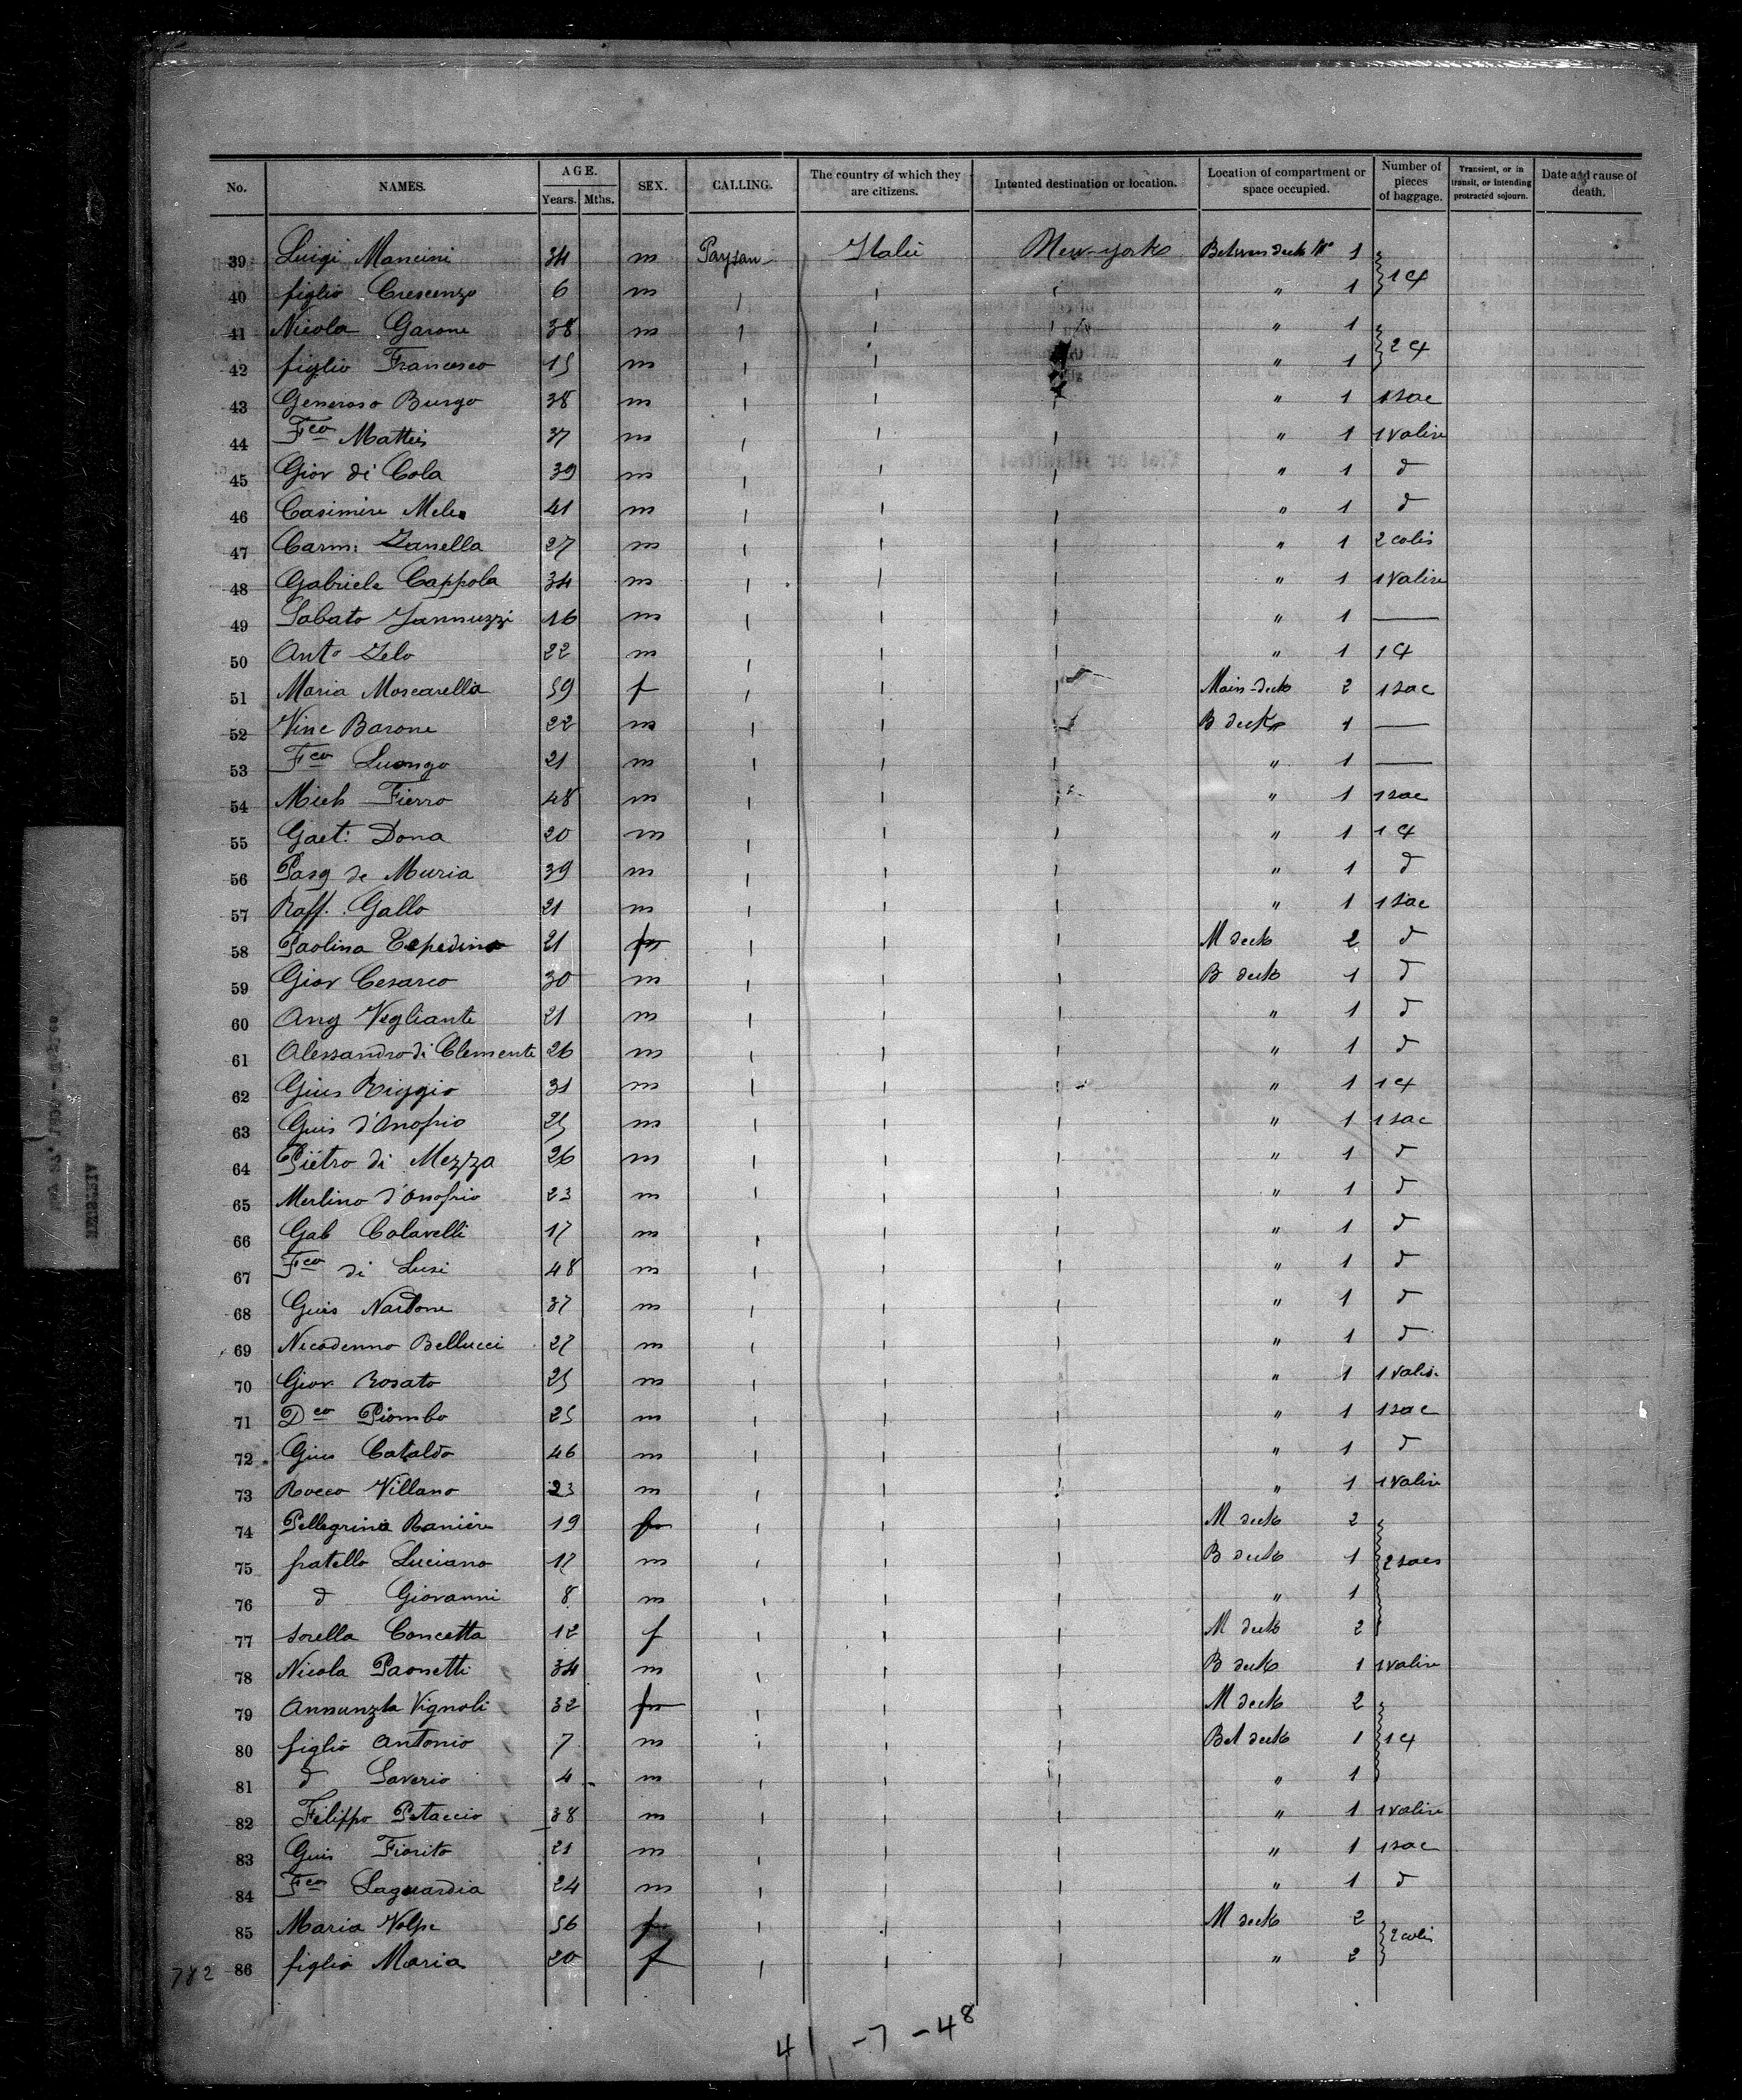 No. NAMES. AGE. Years. Mths. SEX. CALLING. The country of which they are citizens. Intented destination or location. Location of compartment or space occupied. Number of pieces of baggage. Transient, or in transit, or intending protracted sojourn. Date and cause of death.
39 Luigi Mancini 34 m Paysan Italie New-york Betwen deck No 1
40 figlio Crescenzo 6 m " 1 } 1 cf
41 Nicola Garone 38 m " 1
42 figlio Francesco 15 m " 1 } 2 cf
43 Generoso Burgo 38 m " 1 1 sac
44 Fco Matteis 37 m " 1 1 valise
45 Giov di Cola 39 m " 1 d
46 Casimire Mele 41 m " 1 d
47 Carm: Zanella 27 m " 1 2 colis
48 Gabriele Cappola 34 m " 1 1 valise
49 Sabato Jannuzzi 16 m " 1 —
50 Anto Zelo 22 m " 1 1 cf
51 Maria Moscarella 59 f Main-deck 2 1 sac
52 Vinc Barone 22 m B deck 1 —
53 Fco Luongo 21 m " 1 —
54 Mich Fierro 48 m " 1 1 sac
55 Gaet: Dona 20 m " 1 1 cf
56 Pasq de Muria 39 m " 1 d
57 Raff. Gallo 21 m " 1 1 sac
58 Paolina Tepedino 21 f M deck 2 d
59 Giov Cesareo 30 m B deck 1 d
60 Ang Vegliante 21 m " 1 d
61 Alessandro di Clemente 26 m " 1 d
62 Gius Riggio 31 m " 1 1 cf
63 Guis d'Onofrio 25 m " 1 1 sac
64 Piëtro di Mezza 26 m " 1 d
65 Merlino d'Onofrio 23 m " 1 d
66 Gab Colavelli 17 m " 1 d
67 Fco di Lusi 48 m " 1 d
68 Guis Nardone 37 m " 1 d
69 Nicodemno Bellucci 27 m " 1 d
70 Giov Rosato 25 m " 1 1 valise
71 Dco Piombo 25 m " 1 1 sac
72 Gius Cataldo 46 m " 1 d
73 Rocco Villano 23 m " 1 1 valise
74 Pellegrina Raniere 19 f M deck 2
75 fratello Luciano 17 m B deck 1 } 2 sacs
76 d Giovanni 8 m " 1
77 sorella Concetta 12 f M deck 2
78 Nicola Paonetti 34 m B deck 1 1 valise
79 Annunzta Vignoli 32 f M deck 2
80 figlio Antonio 7 m Bet deck 1 } 1 cf
81 d Saverio 4 m " 1
82 Filippo Petaccio 38 m " 1 1 valise
83 Guis Fiorito 21 m " 1 1 sac
84 Fco Laguardia 24 m " 1 d
85 Maria Volpe 56 f M deck 2
86 figlia Maria 20 f " 2 } 2 colis
782
41 - 7 - 48